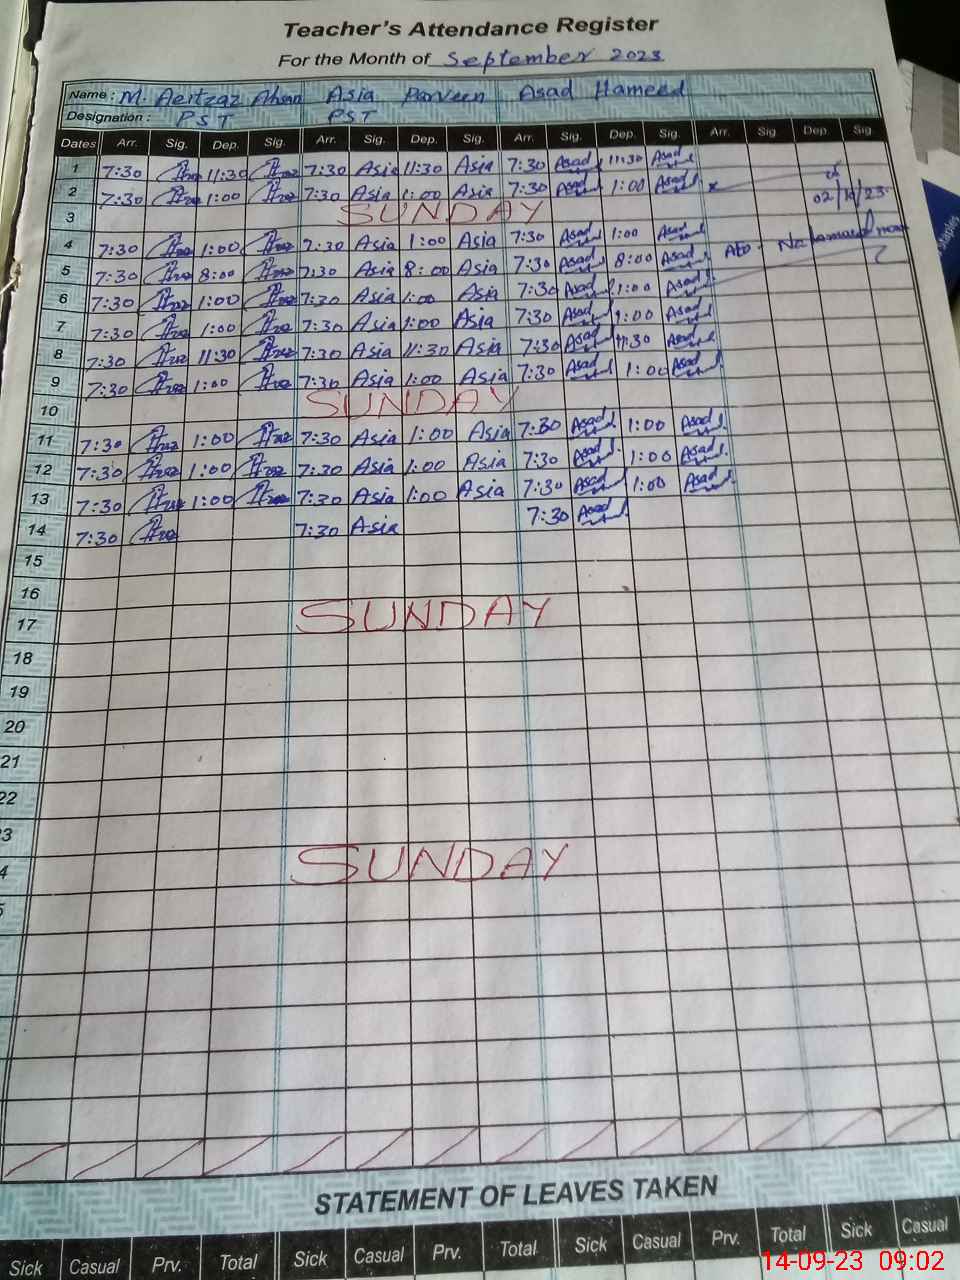 Teacher's Attendance Register
For the Month of September 2023
Name: M. Aeitzaz Ahsan Asia Parveen Asad Hameed
Designation: PST PST
Dates Arr. Sig. Dep. Sig. Arr. Sig. Dep. Sig. Arr. Sig. Dep. Sig. Arr. Sig Dep. Sig.
1 7:30 11:30 7:30 Asia 11:30 Asia 7:30 Asad 11:30 Asad
2 7:30 1:00 7:30 Asia 1:00 Asia 7:30 Asad 1:00 Asad 02/10/23
3 SUNDAY
4 7:30 1:00 7:30 Asia 1:00 Asia 7:30 Asad 1:00 Asad
5 7:30 8:00 7:30 Asia 8:00 Asia 7:30 Asad 8:00 Asad
6 7:30 1:00 7:30 Asia 1:00 Asia 7:30 Asad 1:00 Asad
7 7:30 1:00 7:30 Asia 1:00 Asia 7:30 Asad 1:00 Asad
8 7:30 11:30 7:30 Asia 11:30 Asia 7:30 Asad 11:30 Asad
9 7:30 1:00 7:30 Asia 1:00 Asia 7:30 Asad 1:00 Asad
10 SUNDAY
11 7:30 1:00 7:30 Asia 1:00 Asia 7:30 Asad 1:00 Asad
12 7:30 1:00 7:30 Asia 1:00 Asia 7:30 Asad 1:00 Asad
13 7:30 1:00 7:30 Asia 1:00 Asia 7:30 Asad 1:00 Asad
14 7:30 7:30 Asia 7:30 Asad
15
16
17 SUNDAY
18
19
20
21
22
3
4 SUNDAY
5
STATEMENT OF LEAVES TAKEN
Sick Casual Prv. Total Sick Casual Prv. Total Sick Casual Prv. Total Sick Casual
14-09-23 09:02